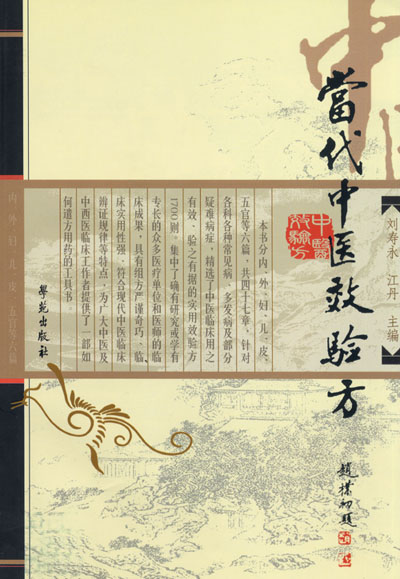 中
當代中医效验方
刘寿永 江丹 主编
中醫
效驗方
本书分内、外、妇、儿、皮、
五官等六篇，共四十七章，针对
各科各种常见病、多发病及部分
疑难病症，精选了中医临床用之
有效、验之有据的实用效验方
1700则，集中了确有研究或学有
专长的众多医疗单位和医师的临
床成果，具有组方严谨奇巧、临
床实用性强、符合现代中医临床
辨证规律等特点，为广大中医及
中西医临床工作者提供了一部如
何遣方用药的工具书。
學苑出版社
趙樸初题